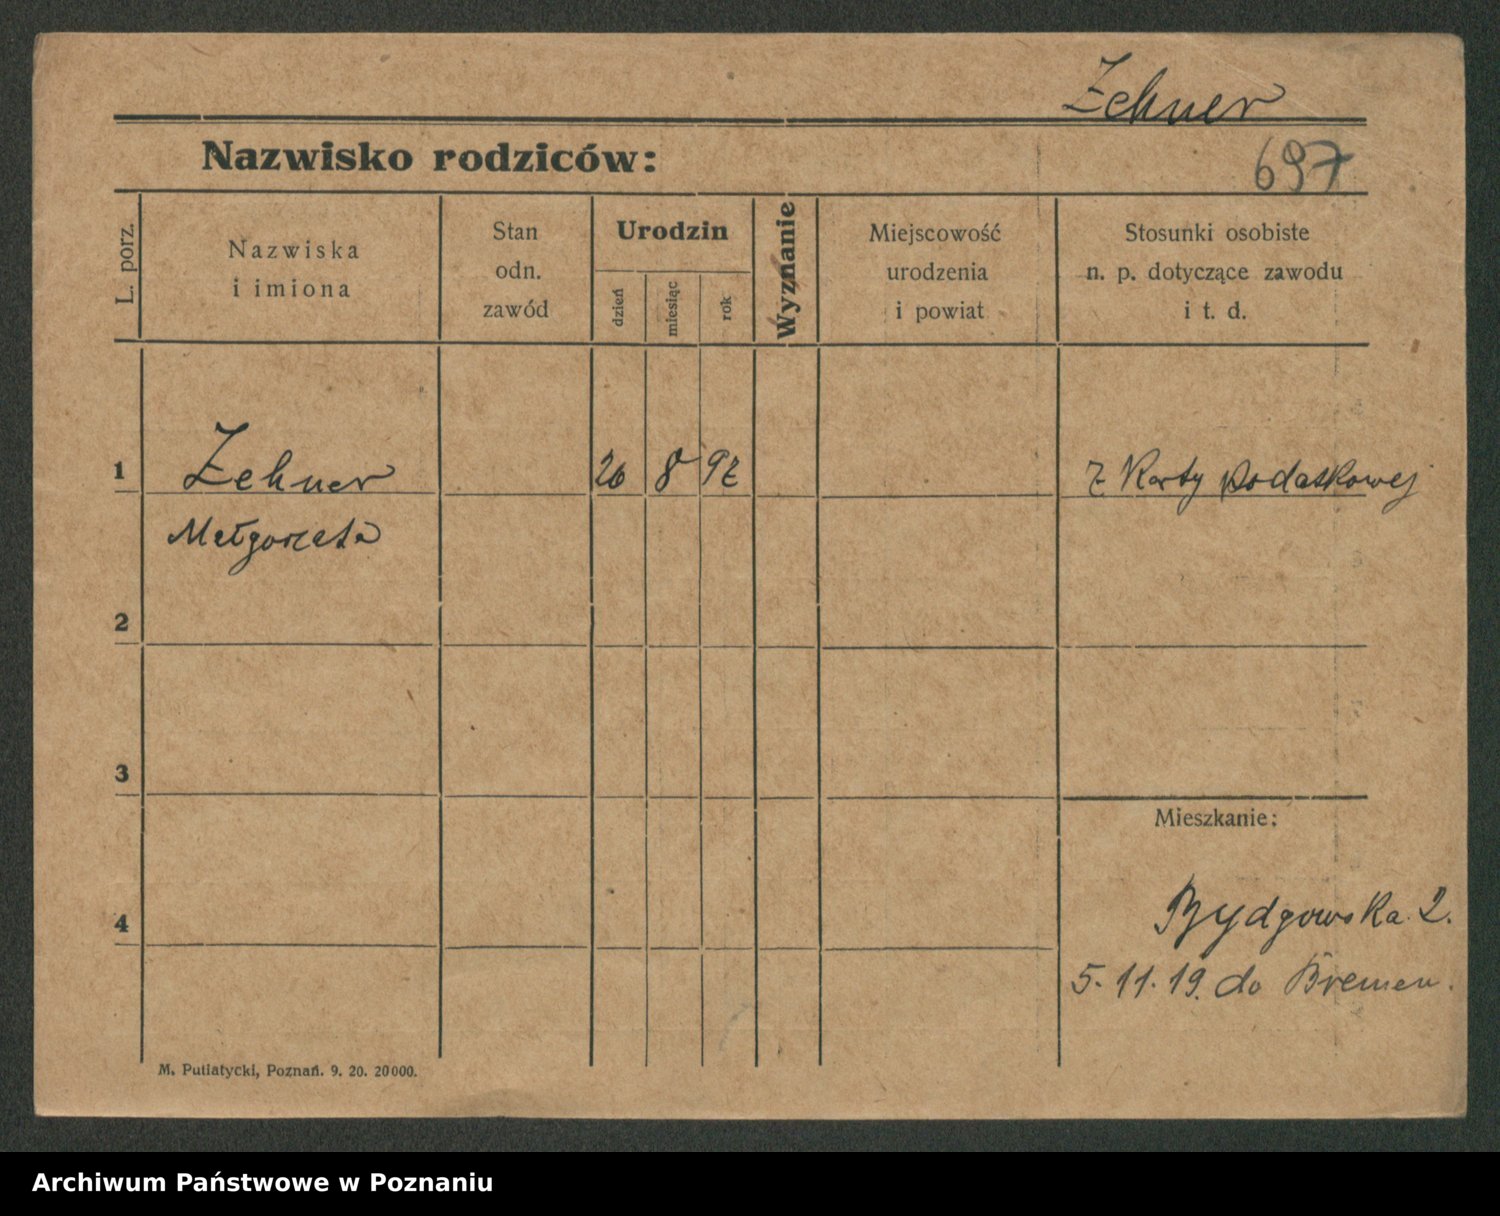 Zehner
Nazwisko rodziców:
697
L. porz.
Nazwiska
i imiona
Stan
odn.
zawód
Urodzin
dzień
miesiąc
rok
Wyznanie
Miejscowość
urodzenia
i powiat
Stosunki osobiste
n. p. dotyczące zawodu
i t. d.
1
Zehner
26 8 92
Z Karty podatkowej
Małgorzata
2
3
Mieszkanie:
4
Bydgowska 2.
5. 11. 19. do Bremen.
M. Putiatycki, Poznań. 9. 20. 20000.
Archiwum Państwowe w Poznaniu